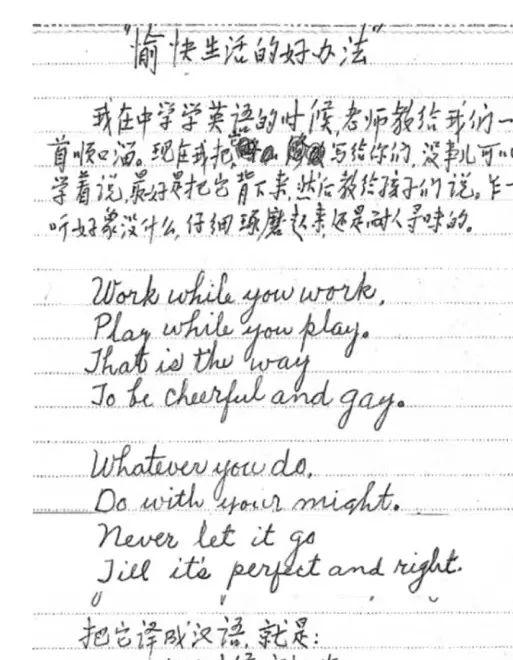 "愉快生活的好办法"
我在中学学英语的时候,老师教给我们一
首顺口溜。现在我把 写给你们,没事儿可以
学着说,最好是把它背下来,然后教给孩子们说。乍一
听好象没什么,仔细琢磨起来,还是耐人寻味的。
Work while you work,
Play while you play.
That is the way
To be cheerful and gay.
Whatever you do,
Do with your might.
Never let it go
Till it's perfect and right.
把它译成汉语,就是: